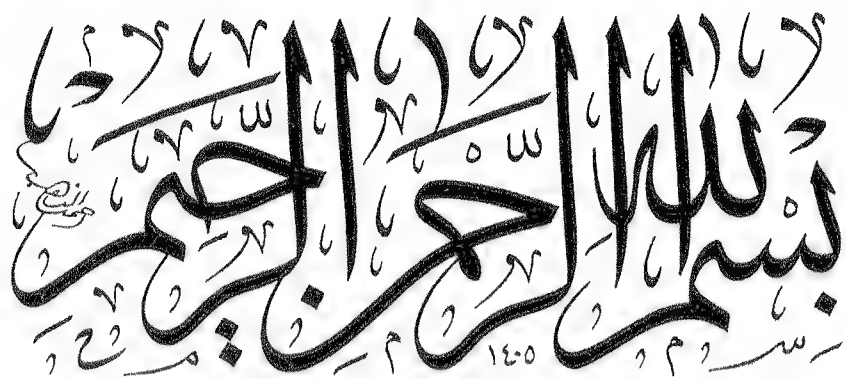 بسم الله الرحمن الرحيم
١٤٠٥